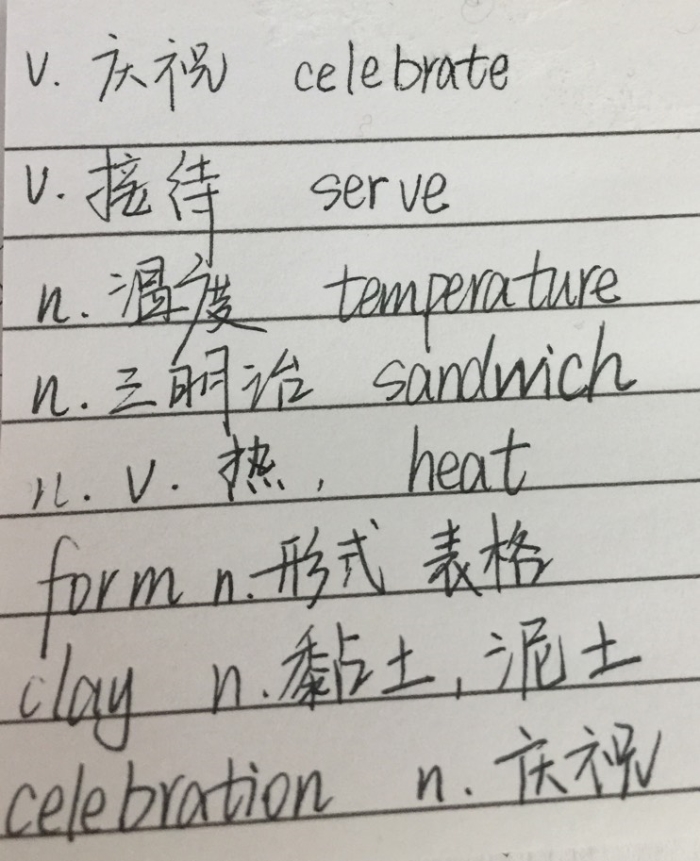 v. 庆祝 celebrate
v. 接待 serve
n. 温度 temperature
n. 三明治 sandwich
n. v. 热, heat
form n. 形式 表格
clay n. 黏土, 泥土
celebration n. 庆祝